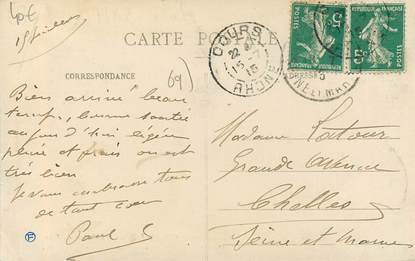 40€
CARTE POSTALE
CORRESPONDANCE
(69)
COURS
22
15
RHONE
5c
5c
POSTES
ADRESSE
Bien arrivé beau
temps, bonne soirée
aujourd'hui légère
pluie et frais on est
très bien
Je vous embrasse tous
de tout cœur
Paul
Madame Latour
Grande Avenue
Chelles
Seine et Marne